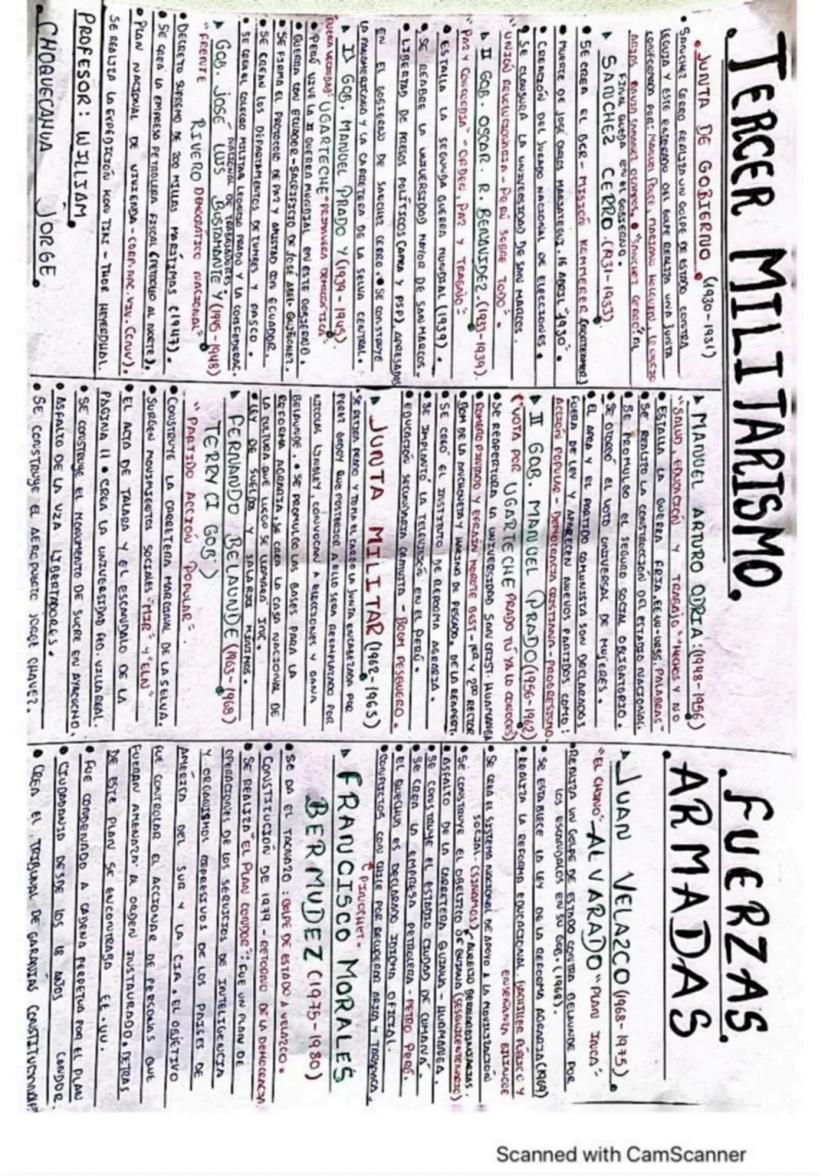 TERCER MILITARISMO.
• JUNTA DE GOBIERNO (1930-1931)
• SANCHEZ CERRO REALIZA UN GOLPE DE ESTADO CONTRA
LEGUIA Y ESTE ENTERADO DEL GOLPE REALIZA UNA JUNTA
CONFORMADA POR: MANUEL PONCE, MARIANO HOLGUIN, LEONCIO
DAVID SAMANEZ OCAMPO. • "SANCHEZ CERRO" AL
FINAL QUEDA EN EL GOBIERNO.
▸ SANCHEZ CERRO. (1931-1933)
• SE CREA EL BCR - MISION KEMMERER
• MUERTE DE JOSÉ CARLOS MARIATEGUI. 16 ABRIL "1930".
• CREACIÓN DEL JURADO NACIONAL DE ELECCIONES.
• SE CLAUSURA LA UNIVERSIDAD DE SAN MARCOS.
"UNIÓN REVOLUCIONARIA - PERÚ SOBRE TODO"
▸ II GOB. OSCAR. R. BENAVIDEZ. (1933-1939).
"PAZ Y CONCORDIA" - ORDEN, PAZ Y TRABAJO"
• ESTALLA LA SEGUNDA GUERRA MUNDIAL (1939).
• SE REABRE LA UNIVERSIDAD MAYOR DE SAN MARCOS.
• LIBERTAD DE PRESOS POLÍTICOS (APRA Y PSP) APRESADOS
EN EL GOBIERNO DE SANCHEZ CERRO. • SE CONSTRUYE
LA PANAMERICANA Y LA CARRETERA DE LA SELVA CENTRAL.
▸ I GOB. MANUEL PRADO Y (1939-1945).
UGARTECHE "PRIMAVERA DEMOCRÁTICA"
• PERÚ VIVE LA II GUERRA MUNDIAL EN ESTE GOBIERNO.
• GUERRA CON ECUADOR - SACRIFICIO DE JOSÉ ABEL QUIÑONEZ.
• SE FIRMA EL PROTOCOLO DE PAZ Y AMISTAD CON ECUADOR.
• SE CREAN LOS DEPARTAMENTOS DE TUMBES Y PASCO.
• SE CREA EL COLEGIO MILITAR LEONCIO PRADO Y LA CONFEDERAC.
NACIONAL DE TRABAJADORES.
▸ GOB. JOSÉ LUIS BUSTAMANTE Y (1945-1948)
RIVERO
"FRENTE DEMOCRÁTICO NACIONAL"
• DECRETO SUPREMO DE 200 MILLAS MARÍTIMAS (1947).
• SE CREA LA EMPRESA PETROLERA FISCAL (PETROLEO AL NORTE).
• PLAN NACIONAL DE VIVIENDA - CORP. NAC. VIV. (CNV).
SE REALIZA LA EXPEDICIÓN KON TIKI - THOR HEYERDHAL.
PROFESOR: WILLIAM.
• CHOQUECAHUA JORGE.
▸ MANUEL ARTURO ODRIA: (1948-1956)
"SALUD, EDUCACIÓN Y TRABAJO" "HECHOS Y NO
PALABRAS"
• ESTALLA LA GUERRA FRIA. EE.UU-URSS.
• SE REALIZÓ LA CONSTRUCCIÓN DEL ESTADIO NACIONAL.
• SE PROMULGÓ EL SEGURO SOCIAL OBLIGATORIO.
• SE OTORGÓ EL VOTO UNIVERSAL DE MUJERES.
• EL APRA Y EL PARTIDO COMUNISTA SON DECLARADOS
FUERA DE LEY Y APARECEN NUEVOS PARTIDOS COMO:
ACCIÓN POPULAR - DEMOCRACIA CRISTIANA - PROGRESISMO.
▸ II GOB. MANUEL PRADO (1956-1962)
UGARTECHE
(VOTA POR PRADO TÚ YA LO CONOCES)
• SE REAPERTURA LA UNIVERSIDAD SAN CRIST. HUAMANGA
ROMERO PINTADO Y EFRAÍN MOROTE BEST - 1ER Y 2DO RECTOR
BOM DE LA ANCHOVETA Y HARINA DE PESCADO. DE LA REAPERT.
• SE CREÓ EL INSTITUTO DE REFORMA AGRARIA.
• SE IMPLANTÓ LA TELEVISIÓN EN EL PERÚ.
• EDUCACIÓN SECUNDARIA GRATUITA - BOOM PESQUERO.
▸ JUNTA MILITAR (1962-1963)
• SE RETIRA PRADO Y TOMA EL CARGO LA JUNTA ENCABEZADA POR
PEREZ GODOY QUE POSTERIOR A ELLO SERA REEMPLAZADO POR
NICOLAS LINDLEY, CONVOCAN A ELECCIONES Y GANA
BELAUNDE. • SE PROMULGO LAS BASES PARA LA
REFORMA AGRARIA. SE CREA LA CASA NACIONAL DE
LA CULTURA QUE LUEGO SE LLAMARA INC.
• LEY DE SUELDO Y SALARIO MINIMOS.
▸ FERNANDO BELAUNDE (1963-1968)
TERRY (I GOB.)
"PARTIDO ACCIÓN POPULAR"
• CONSTRUYE LA CARRETERA MARGINAL DE LA SELVA.
• SURGEN MOVIMIENTOS SOCIALES "MIR" Y "ELN"
• EL ACTA DE TALARA Y EL ESCANDALO DE LA
PAGINA 11 • CREA LA UNIVERSIDAD NO. VILLAREAL.
• SE CONSTRUYE EL MONUMENTO DE SUCRE EN AYACUCHO.
• ASFALTO DE LA VIA LIBERTADORES.
• SE CONSTRUYE EL AEROPUERTO JORGE CHAVEZ.
FUERZAS
ARMADAS
▸ JUAN VELAZCO (1968-1975)
"EL CHINO" - ALVARADO "PLAN INCA"
• REALIZA UN GOLPE DE ESTADO CONTRA BELAUNDE POR
LOS ESCANDALOS EN SU GOB. (1968).
• SE ESTABLECE LA LEY DE LA REFORMA AGRARIA (1969)
• REALIZA LA REFORMA EDUCACIONAL.
ENSEÑANZA BILINGUE
• SE CREA EL SISTEMA NACIONAL DE APOYO A LA MOVILIZACIÓN
SOCIAL. (SINAMOS)
• SE CONSTRUYE EL OBELISCO DE QUINUA (SESQUICENTENARIO)
• ASFALTO DE LA CARRETERA QUINUA - HUAMANGA.
• SE CONSTRUYE EL ESTADIO CIUDAD DE CUMANÁ.
• SE CREA LA EMPRESA PETROLERA - PETRO PERÚ.
• EL QUECHUA ES DECLARADO IDIOMA OFICIAL.
• CONFLICTOS CON CHILE POR RECUPERAR ARICA Y TARAPACA.
PINOCHET.
▸ FRANCISCO MORALES
BERMUDEZ (1975-1980)
• SE DA EL TACNAZO: GOLPE DE ESTADO A VELAZCO.
• CONSTITUCIÓN DE 1979 - RETORNO DE LA DEMOCRACIA
• SE REALIZA "EL PLAN CONDOR": FUE UN PLAN DE
OPERACIONES DE LOS SERVICIOS DE INTELIGENCIA
Y ORGANISMOS REPRESIVOS DE LOS PAISES DE
AMÉRICA DEL SUR Y LA CIA. EL OBJETIVO
FUE CONTROLAR EL ACCIONAR DE PERSONAS QUE
FUERAN AMENAZA AL ORDEN INSTAURADO. DETRAS
DE ESTE PLAN SE ENCONTRABA EE.UU.
• FUE CONDENADO A CADENA PERPETUA POR EL PLAN
CONDOR.
• CIUDADANÍA DESDE LOS 18 AÑOS
• CREA EL TRIBUNAL DE GARANTÍAS CONSTITUCIONALES
Scanned with CamScanner